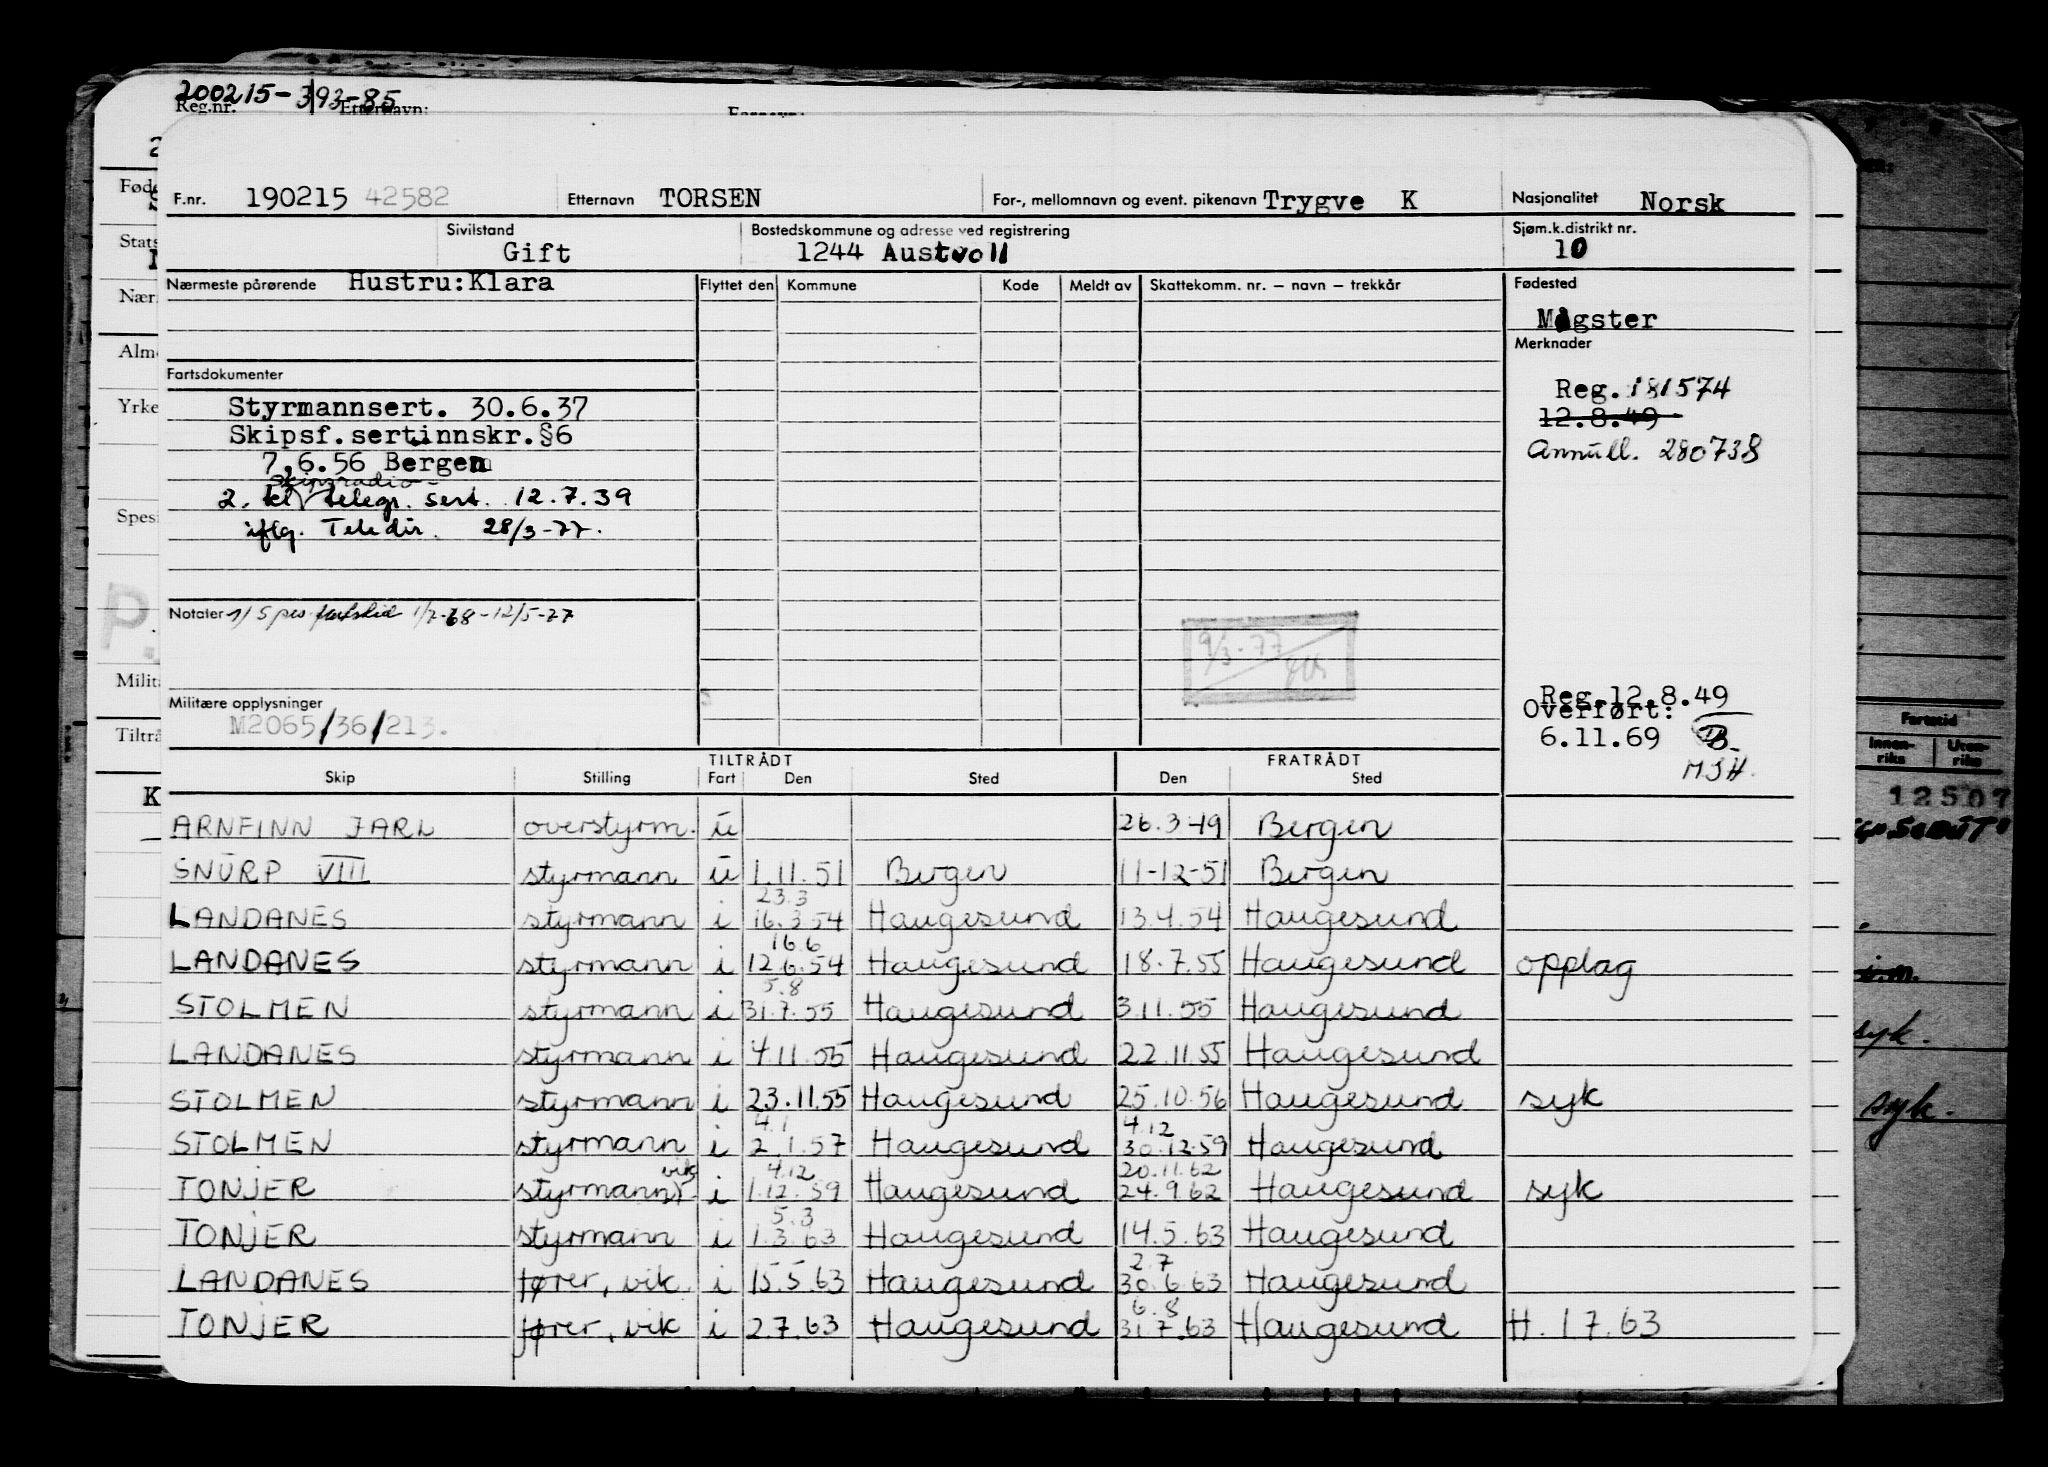 200215-393-85
Reg.nr. Etternavn:
F.nr. 190215 42582 Etternavn TORSEN For-, mellomnavn og event. pikenavn Trygve K Nasjonalitet Norsk
Sivilstand Bostedskommune og adresse ved registrering Sjøm.k.distrikt nr.
Gift 1244 Austvoll 10
Nærmeste pårørende Hustru: Klara Flyttet den Kommune Kode Meldt av Skattekomm. nr. – navn – trekkår Fødested
Møgster
Merknader
Fartsdokumenter
Reg. 181574
Styrmannsert. 30.6.37
12.8.49
Skipsf.sertinnskr.§6
Annull. 280738
7.6.56 Bergen
skipsradio-
2. kl telegr. sert. 12.7.39
iflg. Teledir. 28/3-77.
Notater 1) Spes fartstid 1/7-68-12/5-77
9/3-77
Reg.12.8.49
Militære opplysninger
Overført:
M2065/36/213.
6.11.69 B.
MJH.
TILTRÅDT FRATRÅDT
Skip Stilling Fart Den Sted Den Sted
ARNFINN JARL overstyrm. u 26.3.49 Bergen
SNURP VIII styrmann u 1.11.51 Bergen 11-12-51 Bergen
23.3
LANDANES styrmann i 16.3.54 Haugesund 13.4.54 Haugesund
16.6
LANDANES styrmann i 12.6.54 Haugesund 18.7.55 Haugesund opplag
5.8
STOLMEN styrmann i 31.7.55 Haugesund 3.11.55 Haugesund
LANDANES styrmann i 4.11.55 Haugesund 22.11.55 Haugesund
STOLMEN styrmann i 23.11.55 Haugesund 25.10.56 Haugesund syk
4.1 4.12
STOLMEN styrmann i 2.1.57 Haugesund 30.12.59 Haugesund
vik 4.12 20.11.62
TONJER styrmann i 1.12.59 Haugesund 24.9.62 Haugesund syk
5.3
TONJER styrmann i 1.3.63 Haugesund 14.5.63 Haugesund
2.7
LANDANES fører, vik. i 15.5.63 Haugesund 30.6.63 Haugesund
6.8
TONJER fører, vik i 2.7.63 Haugesund 31.7.63 Haugesund H. 1.7.63
Fartstid
Innen-riks Uten-riks
12507
syk.
syk.